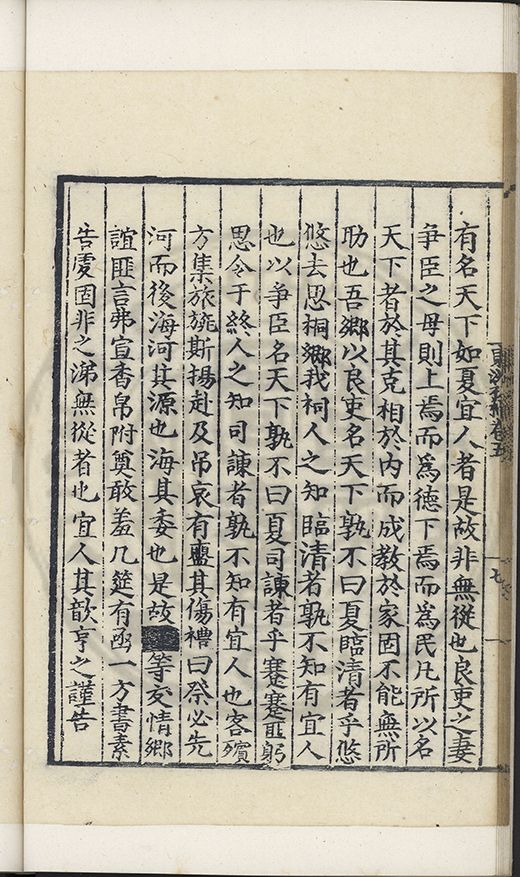 有名天下如夏宜人者是故非無從也良吏之妻
争臣之母則上焉而爲德下焉而爲民凡所以名
天下者於其克相於内而成教於家固不能無所
助也吾鄉以良吏名天下孰不曰夏臨清者乎悠
悠去思桐鄉我祠人之知臨清者孰不知有宜人
也以争臣名天下孰不曰夏司諫者乎蹇蹇匪躬
思令于終人之知司諫者孰不知有宜人也客殯
方集旅旐斯揚赴及吊哀有盬其傷禮曰祭必先
河而後海河其源也海其委也是故等交情鄉
誼匪言弗宣香帛附奠敢羞几筵有函一方書素
告䖍固非之涕無從者也宜人其歆亨之謹告
卷五
七